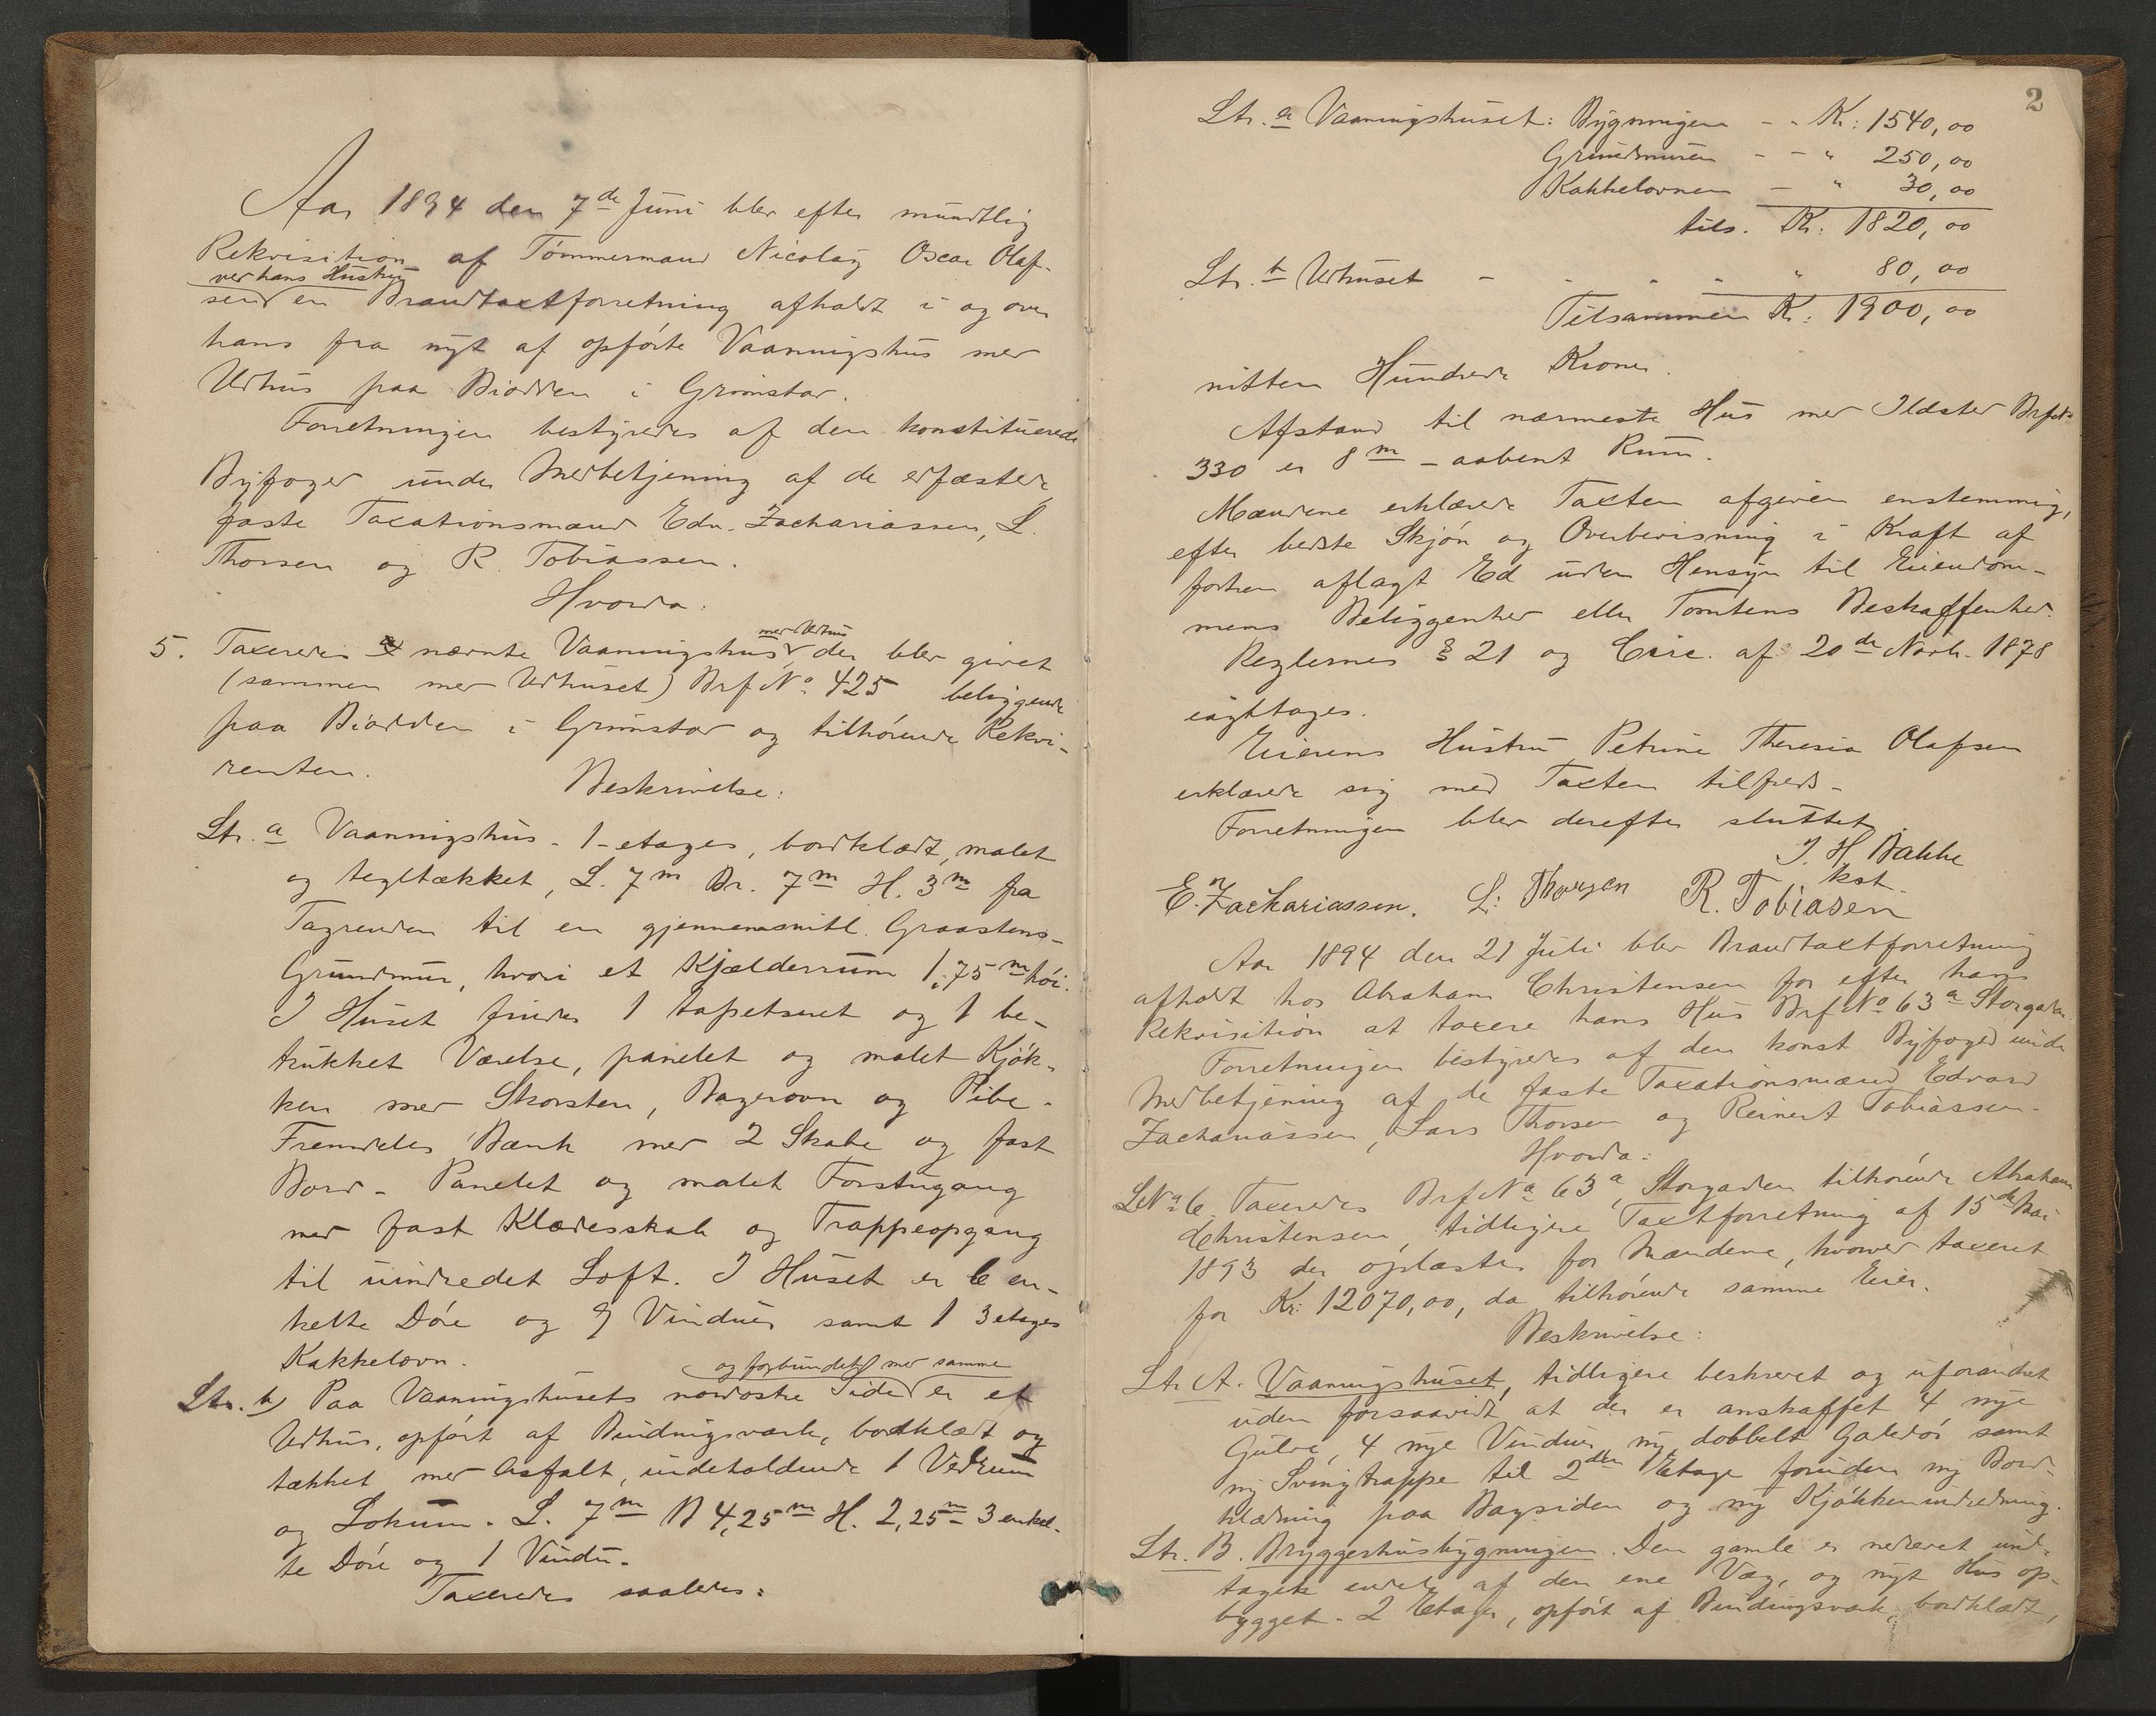 Aar 1894 den 7de Juni blev efter mundtlig
Rekvisition af Tömmermand Nicolay Oscar Olaf-
ved hans Hustru
sen en Brandtaxtforretning afholdt i og over
hans fra nyt af opförte Vaaningshus med
Udhus paa Biodden i Grimstad.
Forretningen bestyredes af den konstituerede
Byfoged under Medbetjening af de edfæstede
faste Taxationsmænd Edv. Zachariassen, L.
Thorsen og R. Tobiassen.
Hvorda:
5. Taxeredes nævnte Vaaningshus, der blev givet
med Udhus
(sammen med Udhuset) Brf No. 425 beliggende
paa Biodden i Grimstad og tilhörende Rekvi-
renten.
Beskrivelse:
Ltr. a Vaaningshus - 1-etages, bordklædt, malet
og tegltækket, L. 7m Br. 7m H. 3m fra
Tagrenden til en gjennemsnitl. Graastens-
Grundmur, hvori et Kjælderrum 1,75m höi.
I Huset findes 1 tapetseret og 1 be-
trukket Værelse, panelet og malet Kjök-
ken med Skorsten, Bagerovn og Pibe.
Fremdeles Bænk med 2 Skabe og fast
Bord - Panelet og malet Forstugang
med fast Klædesskab og Trappeopgang
til uindredet Loft. I Huset er 6 en-
kelte Döre og 9 Vinduer samt 1 3etages
Kakkelovn.
og forbundet med samme
Ltr. b) Paa Vaaningshusets nordostre Side er et
Udhus, opfört af Bindingsværk, bordklædt og
tækket med Asfalt, indeholdende 1 Vedrum
og Lokum. L. 7m B 4,25m H. 2,25m 3 enkel-
te Döre og 1 Vindu.
Taxeredes saaledes:
2
Ltr. a Vaaningshuset: Bygningen - - Kr: 1540,00
Grundmuren - - " 250,00
Kakkelovnen - " 30,00
tils. Kr: 1820,00
Ltr. b Udhuset - - " " " 80,00
Tilsammen Kr: 1900,00
nitten Hundrede Kroner.
Afstand til nærmeste Hus med Ildsted Brf No
330 er 8m - aabent Rum.
Mændene erklærede Taxten afgiven enstemmig,
efter bedste Skjön og Overbevisning i Kraft af
forhen aflagt Ed uden Hensyn til Eiendom-
mens Beliggenhed eller Tomtens Beskaffenhed.
Reglernes § 21 og Circ. af 20de Novb. 1878
iagttages.
Eierens Hustru Petrine Theresia Olafsen
erklærede sig med Taxten tilfreds.
Forretningen blev derefter sluttet.
J. H. Bakke
kst.
E. Zachariassen. L. Thorsen R. Tobiasen
Aar 1894 den 21 Juli blev Brandtaxtforretning
afholdt hos Abraham Christensen for efter hans
Rekvisition at taxere hans Hus Brf No 63a Storgaden.
Forretningen bestyredes af den konst. Byfoged under
Medbetjening af de faste Taxationsmænd Edvard
Zachariassen, Lars Thorsen og Reinert Tobiassen.
Hvorda:
LNo 6. Taxeredes Brf No 63a, Storgaden tilhörende Abraham
Christensen, tidligere Taxtforretning af 15de Mai
1893 der oplæstes for Mændene, hvorved taxeret
for Kr: 12070,00, da tilhörende samme Eier.
Beskrivelse:
Ltr A. Vaaningshuset, tidligere beskrevet og uforandret
uden forsaavidt at der er anskaffet 4 nye
Gulve, 4 nye Vinduer, ny dobbelt Gadedör samt
ny Svingtrappe til 2den Etage foruden ny Bord-
klædning paa Bagsiden og ny Kjökkenindredning.
Ltr. B. Bryggerhusbygningen. Den gamle er nedrevet und-
tagen endel af den ene Væg, og nyt Hus op-
bygget - 2 Etager, opfört af Bindingsværk, bordklædt,